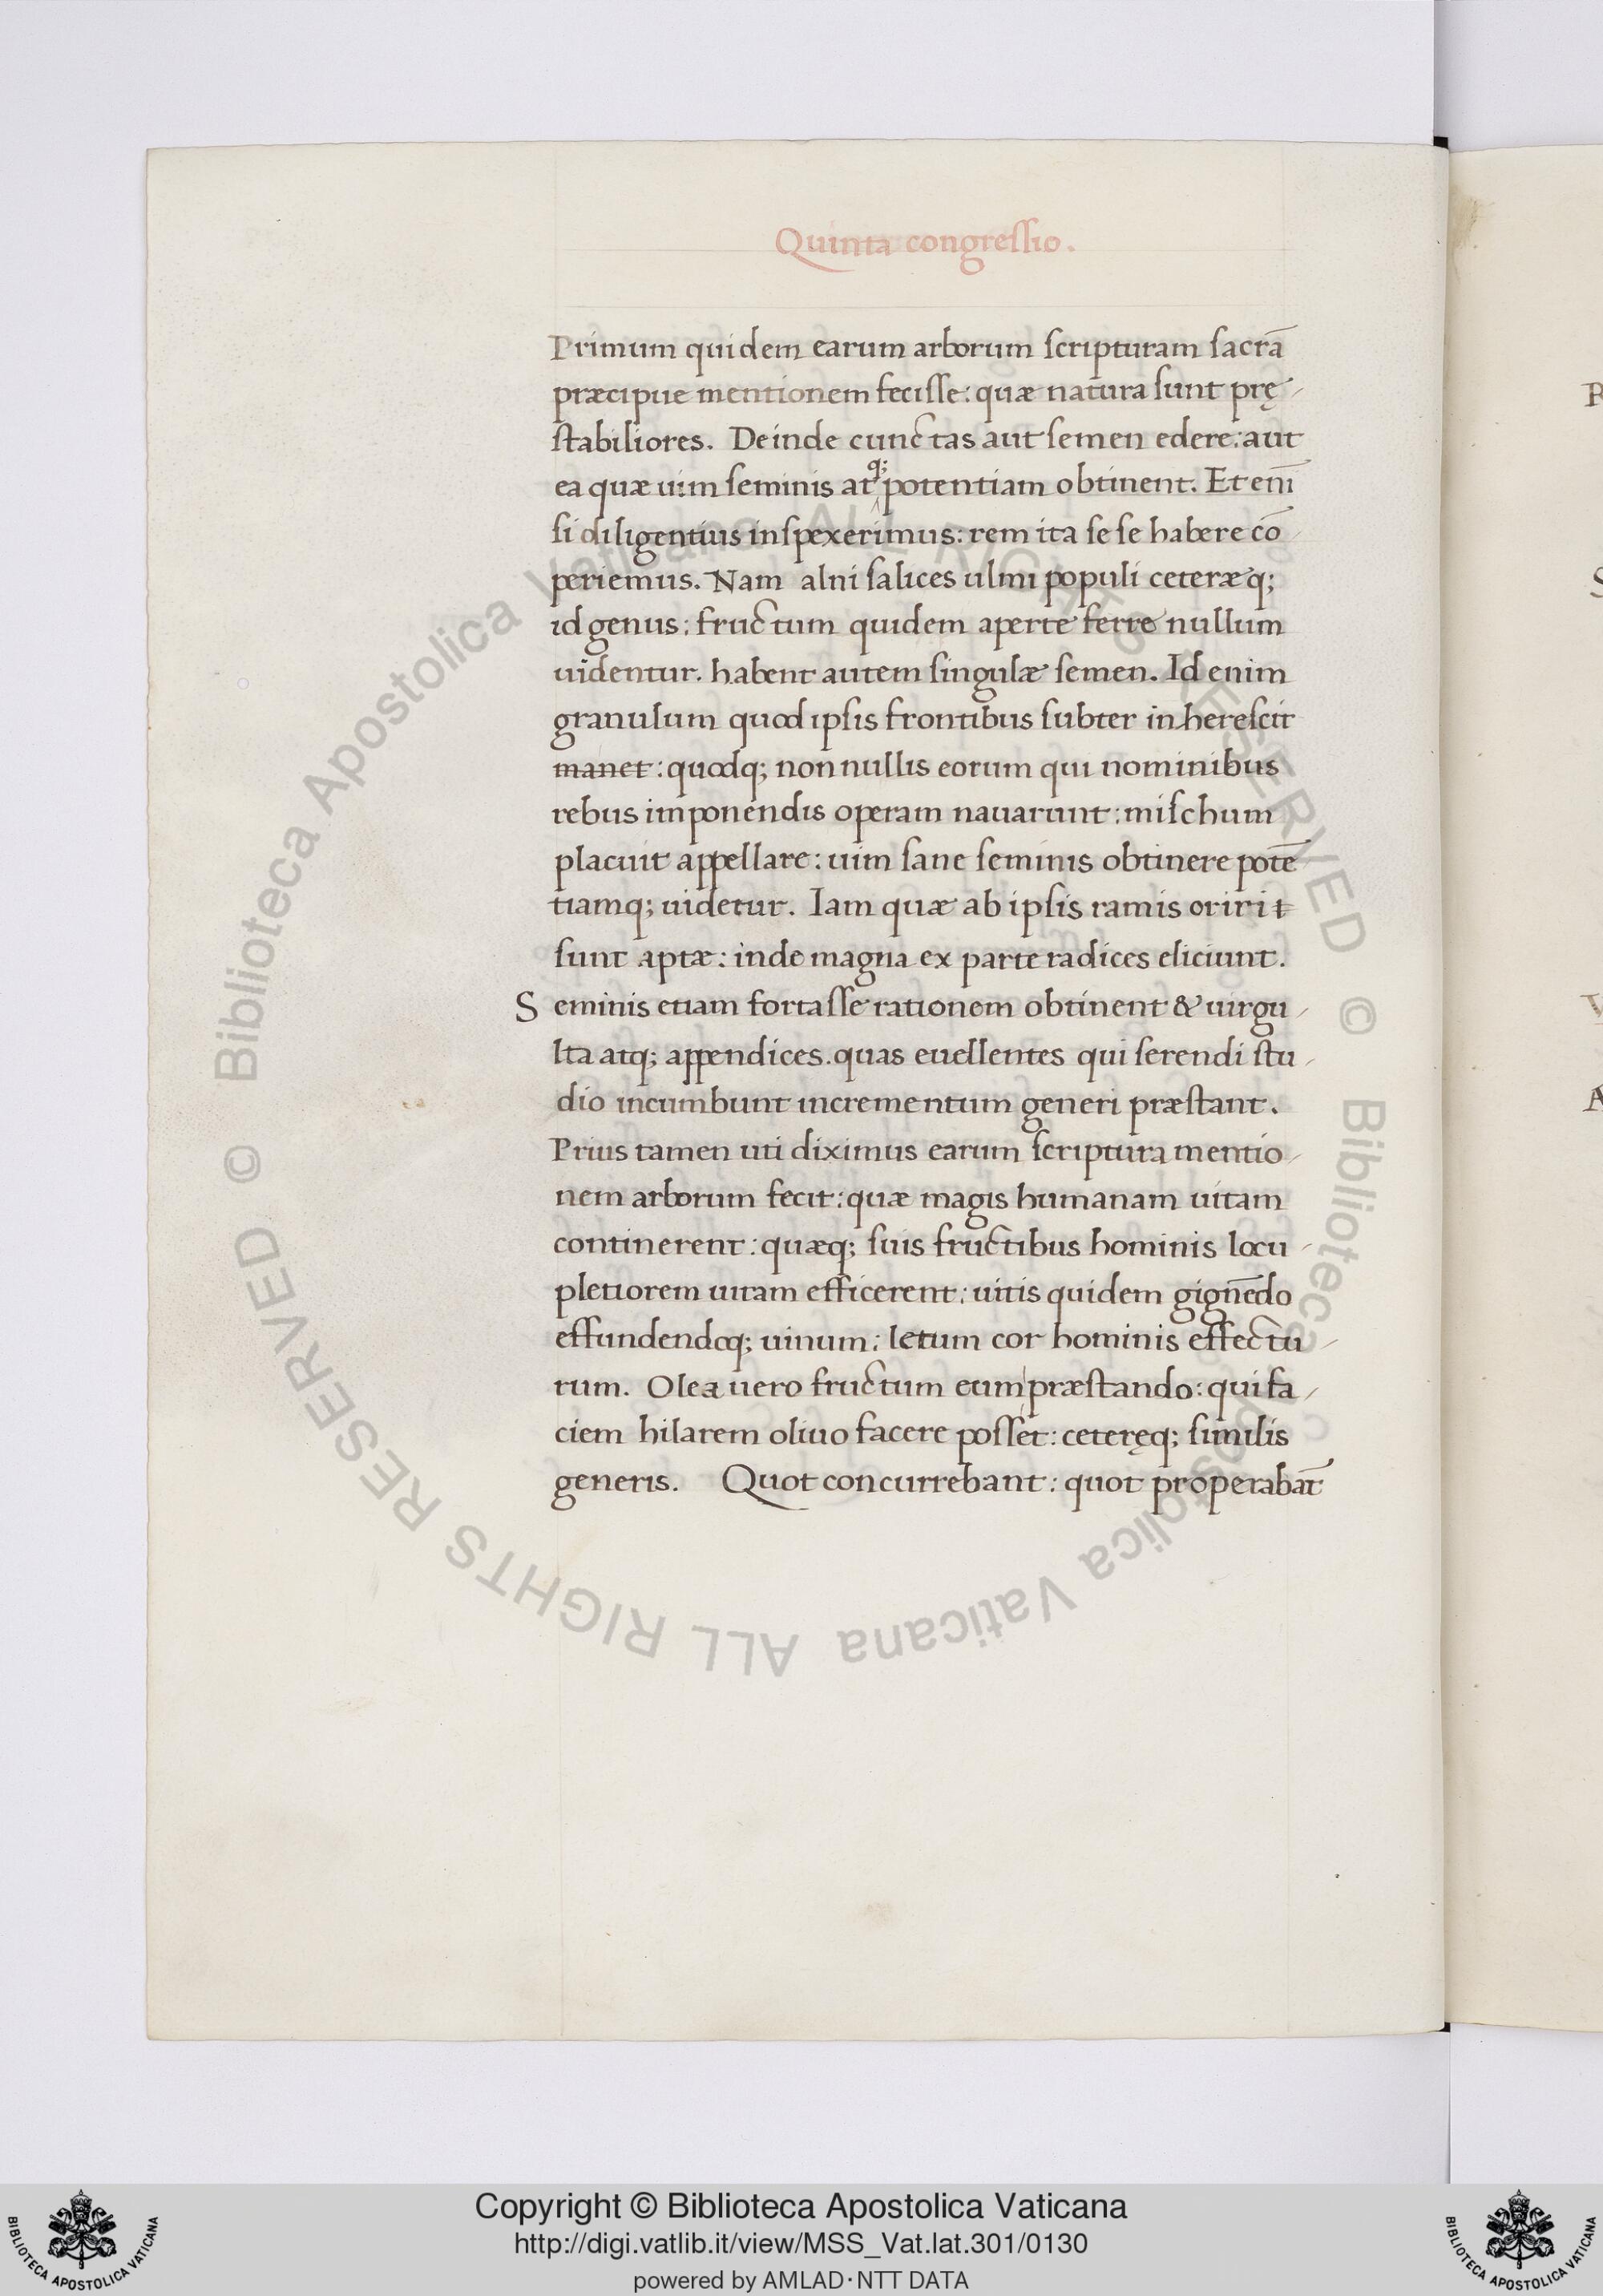 Quinta congressio.
Primum quidem earum arborum scripturam sacrā
præcipue mentionem fecisse: quæ natura sunt prę-
stabiliores. Deinde cunctas aut semen edere: aut
ea quæ uim seminis atq; potentiam obtinent. Et enī
si diligentius inspexerimus: rem ita se se habere cō
periemus. Nam alni salices ulmi populi ceteræq;
id genus: fructum quidem aperte ferre nullum
uidentur. habent autem singulæ semen. Id enim
granulum quod ipsis frontibus subter inherescit
manet: quodq; non nullis eorum qui nominibus
rebus imponendis operam nauarunt: mischum
placuit appellare: uim sane seminis obtinere potē
tiamq; uidetur. Iam quæ ab ipsis ramis oriri
sunt aptæ: inde magna ex parte radices eliciunt.
Seminis etiam fortasse rationem obtinent & uirgu-
lta atq; appendices. quas euellentes qui serendi stu-
dio incumbunt incrementum generi præstant.
Prius tamen uti diximus earum scriptura mentio-
nem arborum fecit: quæ magis humanam uitam
continerent: quæq; suis fructibus hominis locu-
pletiorem uitam efficerent: uitis quidem gignēdo
effundendoq; uinum: letum cor hominis effectu-
rum. Olea uero fructum eum præstando: qui fa-
ciem hilarem oliuo facere posset: ceteręq; similis
generis. Quot concurrebant: quot properabāt
© Biblioteca Apostolica Vaticana ALL RIGHTS RESERVED
© Biblioteca Apostolica Vaticana ALL RIGHTS RESERVED
Copyright © Biblioteca Apostolica Vaticana
http://digi.vatlib.it/view/MSS_Vat.lat.301/0130
powered by AMLAD·NTT DATA
BIBLIOTECA APOSTOLICA VATICANA
BIBLIOTECA APOSTOLICA VATICANA